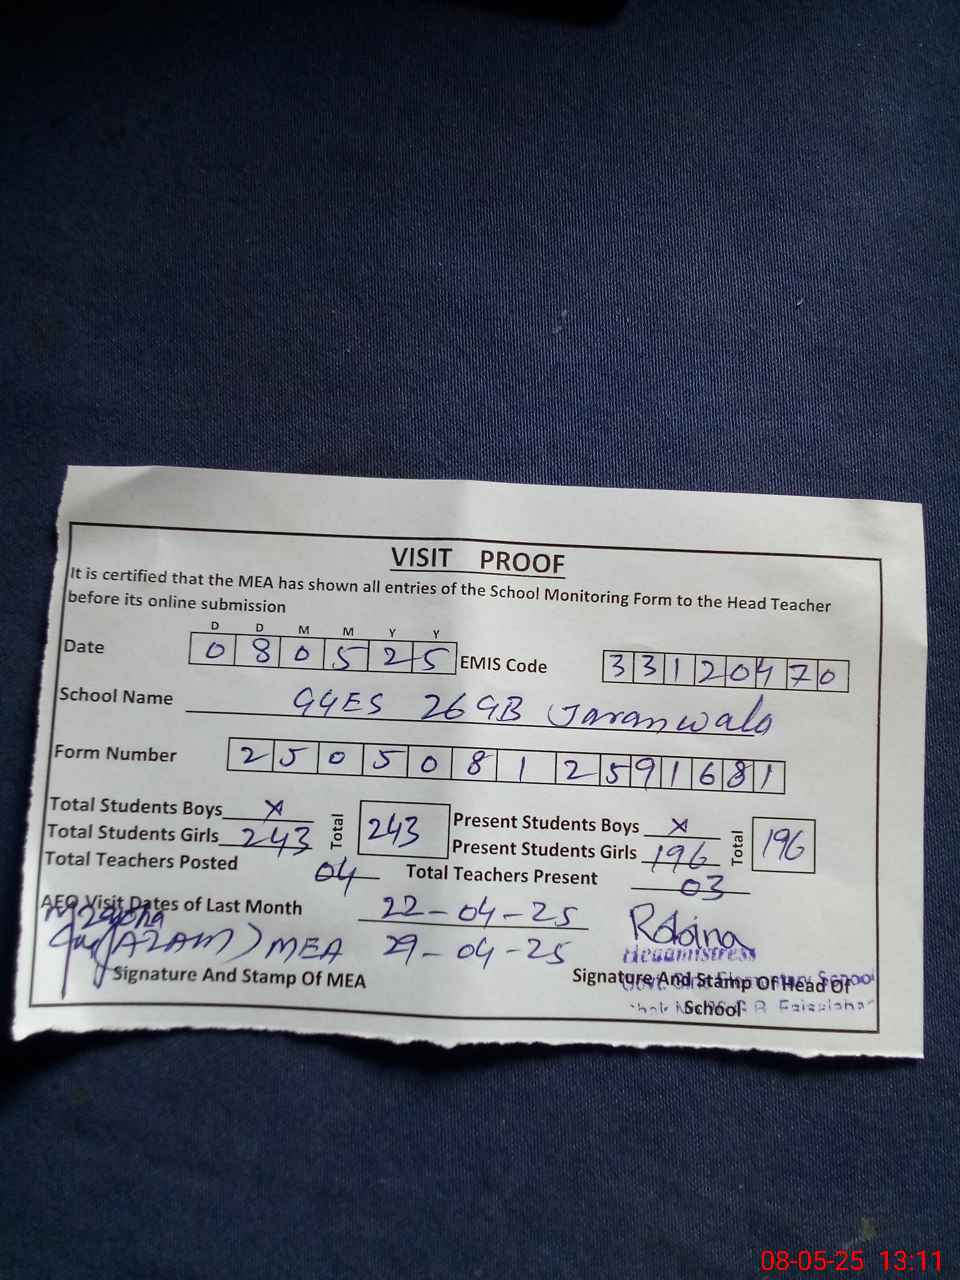 VISIT PROOF
It is certified that the MEA has shown all entries of the School Monitoring Form to the Head Teacher
before its online submission
D D M M Y Y
Date 0 8 0 5 2 5 EMIS Code 3 3 1 2 0 4 7 0
School Name GGES 26 GB Jaranwala
Form Number 2 5 0 5 0 8 1 2 5 9 1 6 8 1
Total Students Boys x Total 243 Present Students Boys x Total 196
Total Students Girls 243 Present Students Girls 196
Total Teachers Posted 04 Total Teachers Present 03
AEO Visit Dates of Last Month 22-04-25 Robina
(AZAM) MEA 29-04-25 Headmistress
Signature And Stamp Of MEA Signature And Stamp Of Head Of
School
Govt. Girls Elementary School
08-05-25 13:11